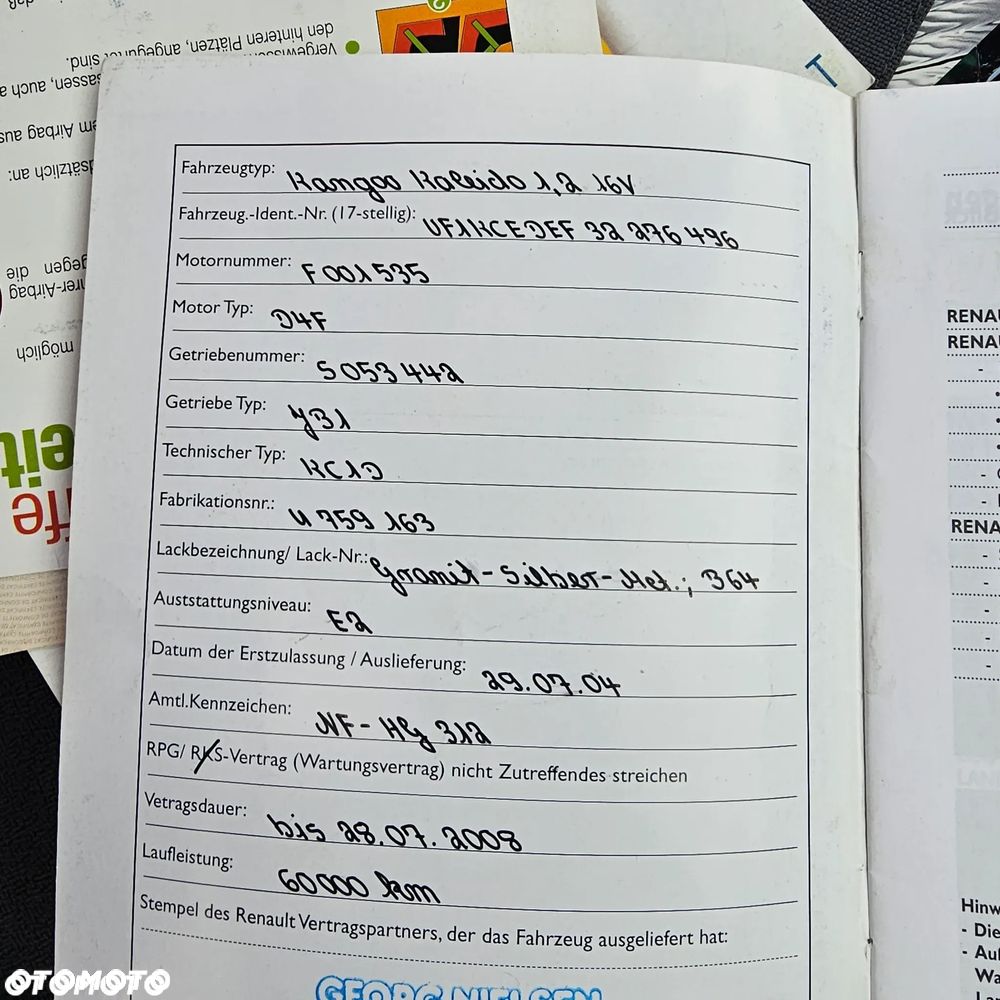 den hinteren Plätzen, angegurtet sind.
Vergewissern
sassen, auch a
em Airbag aus
dsätzlich an:
gegen die
hrer-Airbag
möglich
eit
ffe
T
Fahrzeugtyp: Kangoo Kaleido 1,2 16V
Fahrzeug.-Ident.-Nr. (17-stellig): VF1KCEDEF 32 276 496
Motornummer: F 001 535
Motor Typ: D4F
Getriebenummer: S 053 442
Getriebe Typ: JB1
Technischer Typ: KC1D
Fabrikationsnr.: U 759 163
Lackbezeichnung/ Lack-Nr.: Granit-Silber-Met.; 364
Auststattungsniveau: E2
Datum der Erstzulassung / Auslieferung: 29.07.04
Amtl.Kennzeichen: NF-HG 312
RPG/ RKS-Vertrag (Wartungsvertrag) nicht Zutreffendes streichen
Vetragsdauer: bis 28.07.2008
Laufleistung: 60000 km
Stempel des Renault Vertragspartners, der das Fahrzeug ausgeliefert hat:
GEORG NIELSEN
RENAU
RENAU
RENA
Hinw
- Die
- Auf
Wa
OTOMOTO